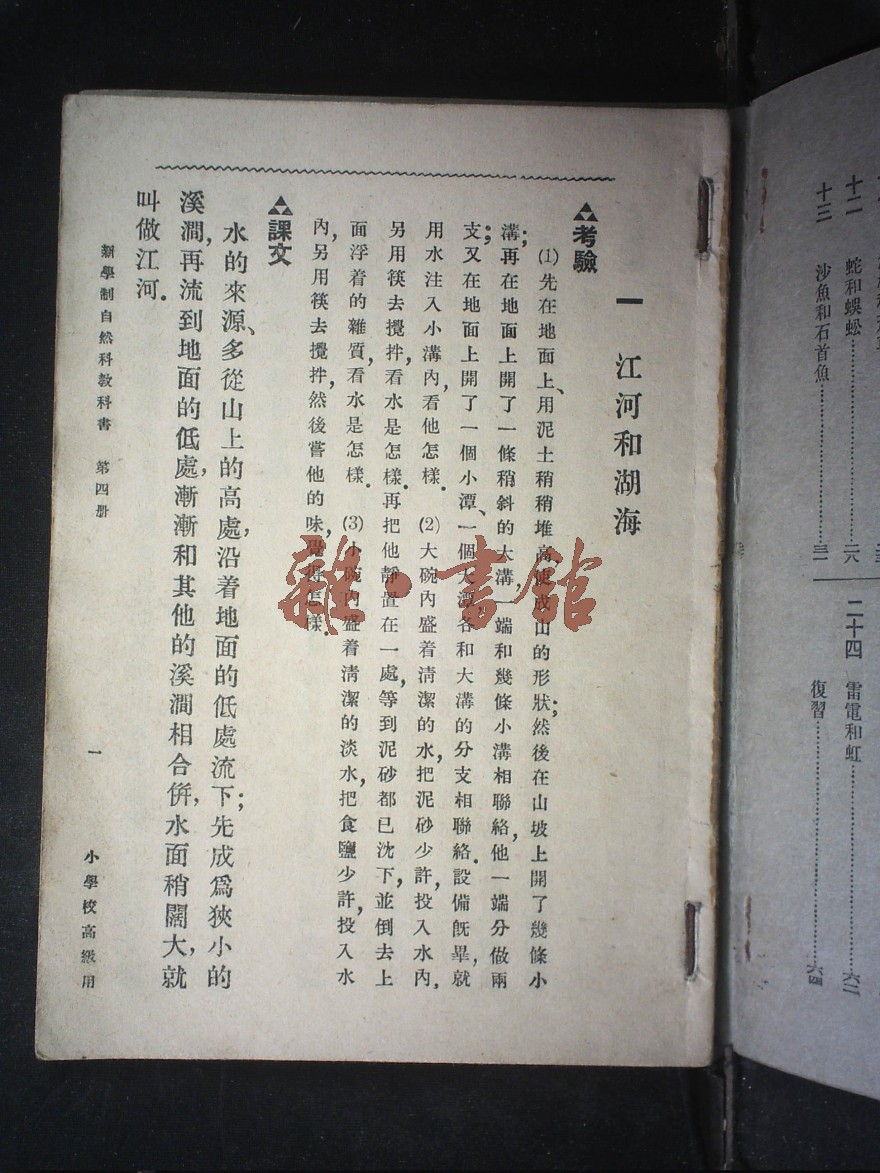 十二　蛇和蜈蚣……二八
十三　沙魚和石首魚……三一
二十四　雷電和虹……六二
復習……六四
一　江河和湖海
考驗
⑴先在地面上、用泥土稍稍堆高使成山的形狀；然後在山坡上開了幾條小
溝；再在地面上開了一條稍斜的大溝，一端和幾條小溝相聯絡，他一端分做兩
支；又在地面上開了一個小潭、一個大潭各和大溝的分支相聯絡．設備旣畢，就
用水注入小溝內，看他怎樣．⑵大碗內盛着清潔的水，把泥砂少許，投入水內，
另用筷去攪拌，看水是怎樣．再把他靜置在一處，等到泥砂都已沈下，並倒去上
面浮着的雜質，看水是怎樣．⑶小碗內盛着清潔的淡水，把食鹽少許，投入水
內，另用筷去攪拌，然後嘗他的味，覺得怎樣．
課文
水的來源、多從山上的高處，沿着地面的低處流下；先成爲狹小的
溪澗，再流到地面的低處，漸漸和其他的溪澗相合併，水面稍闊大，就
叫做江河．
新學制自然科教科書　第四册　一　小學校高級用
雜·書館